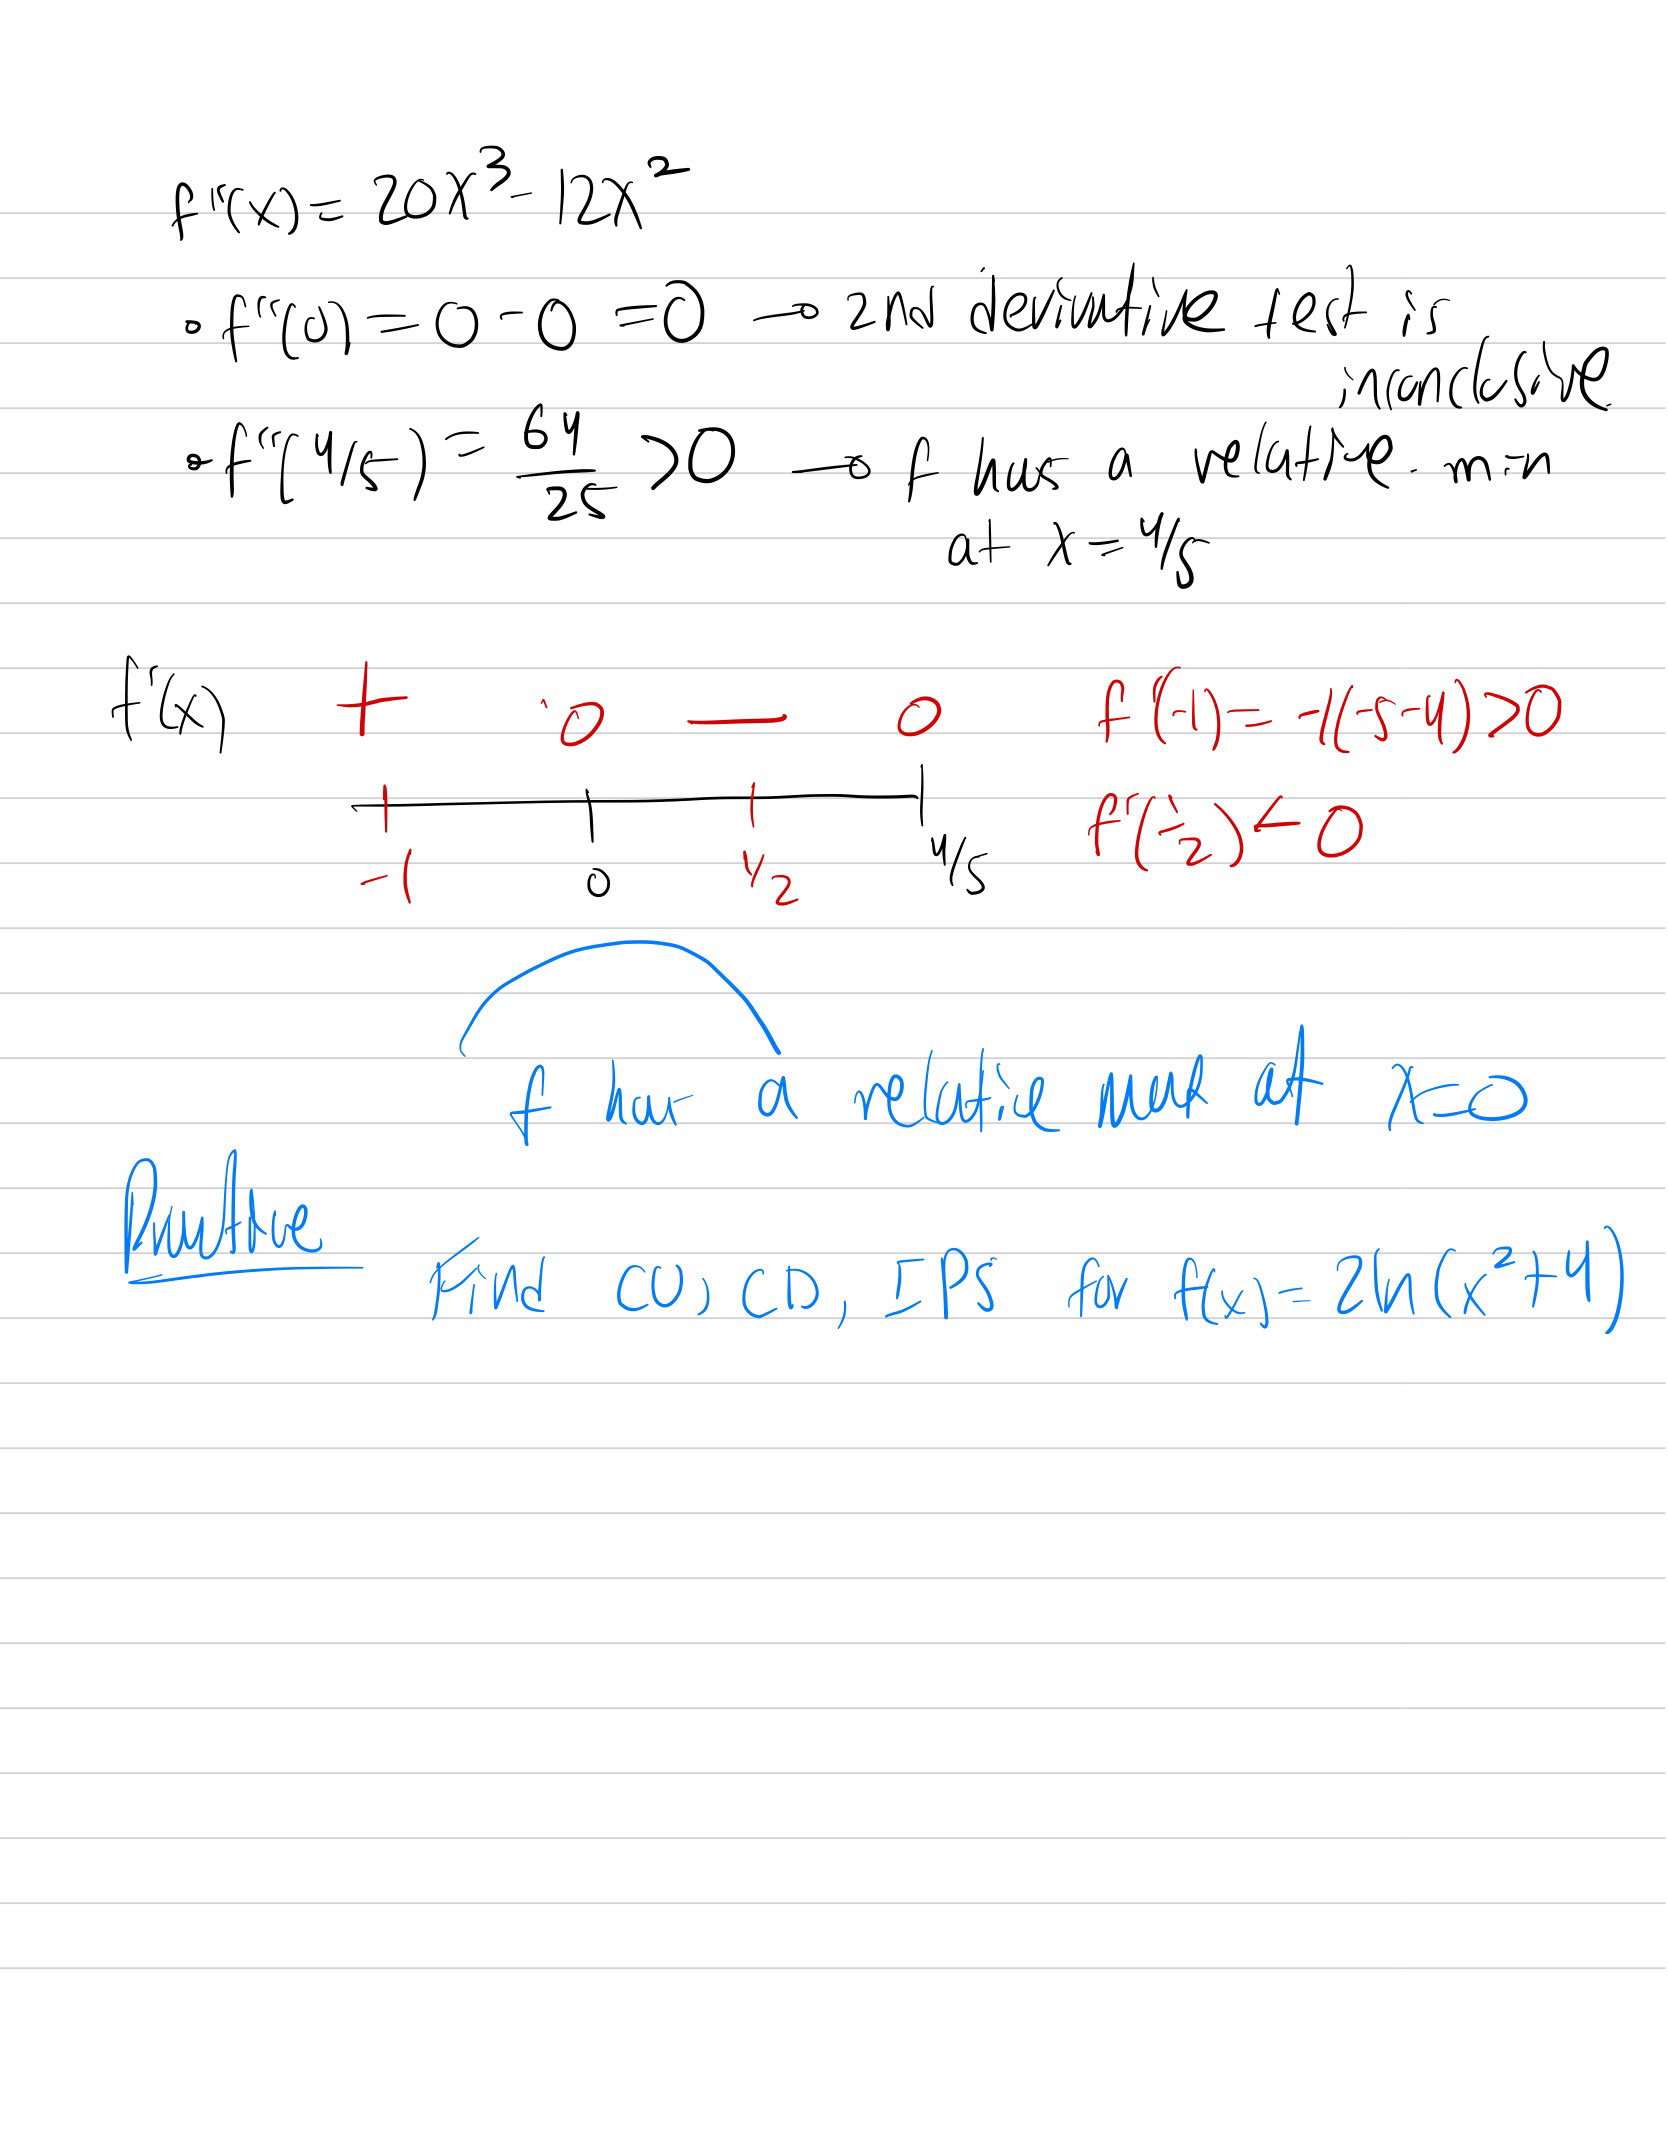 f''(x) = 20x³ - 12x²
• f''(0) = 0 - 0 = 0 → 2nd derivative test is
inconclusive
• f''(4/5) = 64/25 > 0 → f has a relative min
at x = 4/5
f'(x) + 0 — 0 f'(-1) = -1(-5-4) > 0
-1 0 1/2 4/5 f'(1/2) < 0
f has a relative max at x=0
Practice
Find CU, CD, IPS for f(x) = 2ln(x²+4)